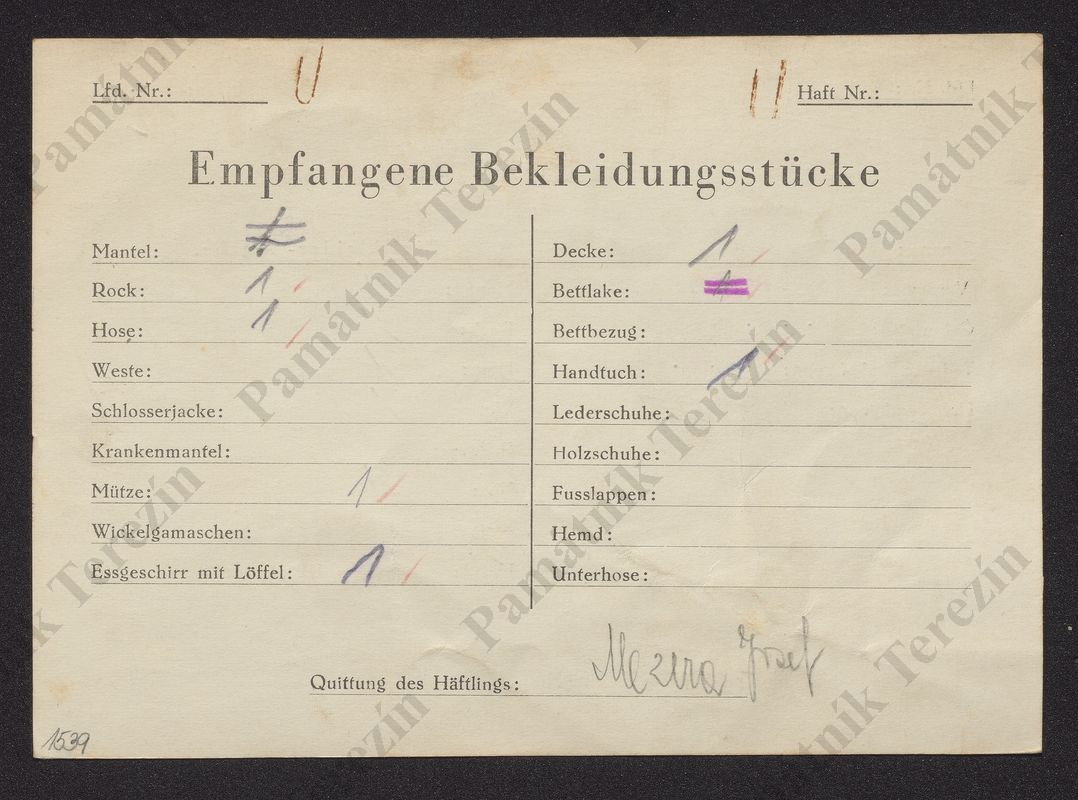 Lfd. Nr.: U
11 Haft Nr.:
Empfangene Bekleidungsstücke
Mantel: 1
Rock: 1
Hose: 1
Weste:
Schlosserjacke:
Krankenmantel:
Mütze: 1
Wickelgamaschen:
Essgeschirr mit Löffel: 1
Decke: 1
Bettlake: 1
Bettbezug:
Handtuch: 1
Lederschuhe:
Holzschuhe:
Fusslappen:
Hemd:
Unterhose:
Quittung des Häftlings: Mezera Josef
1539
Památník Terezín
Památník Terezín
Památník Terezín